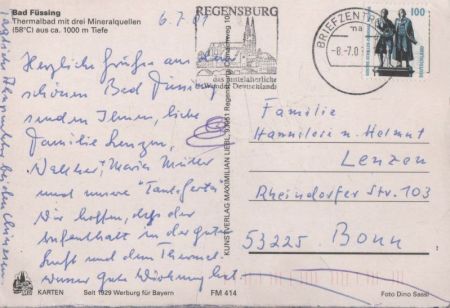 Bad Füssing
Thermalbad mit drei Mineralquellen
(58°C) aus ca. 1000 m Tiefe
6.7.01
Herzliche Grüße aus dem
schönen Bad Füssing
senden Ihnen, liebe
Familie Lenzen,
Maria Müller
und unsere "Tante
Wir hoffen, daß der
Aufenthalt in der guten
Luft und dem Thermal-
wasser gute Wirkung hat.
KARTEN
Seit 1929 Werbung für Bayern
FM 414
KUNSTVERLAG MAXIMILIAN LIEBL, 93051 Regensburg
REGENSBURG
das mittelalterliche
Wunder Deutschlands
BRIEFZENTRUM
-8.-7.0
100
DEUTSCHLAND
Familie
Hannelore u. Helmut
Lenzen
Rheindorfer Str. 103
53225 Bonn
Foto Dino Sassi